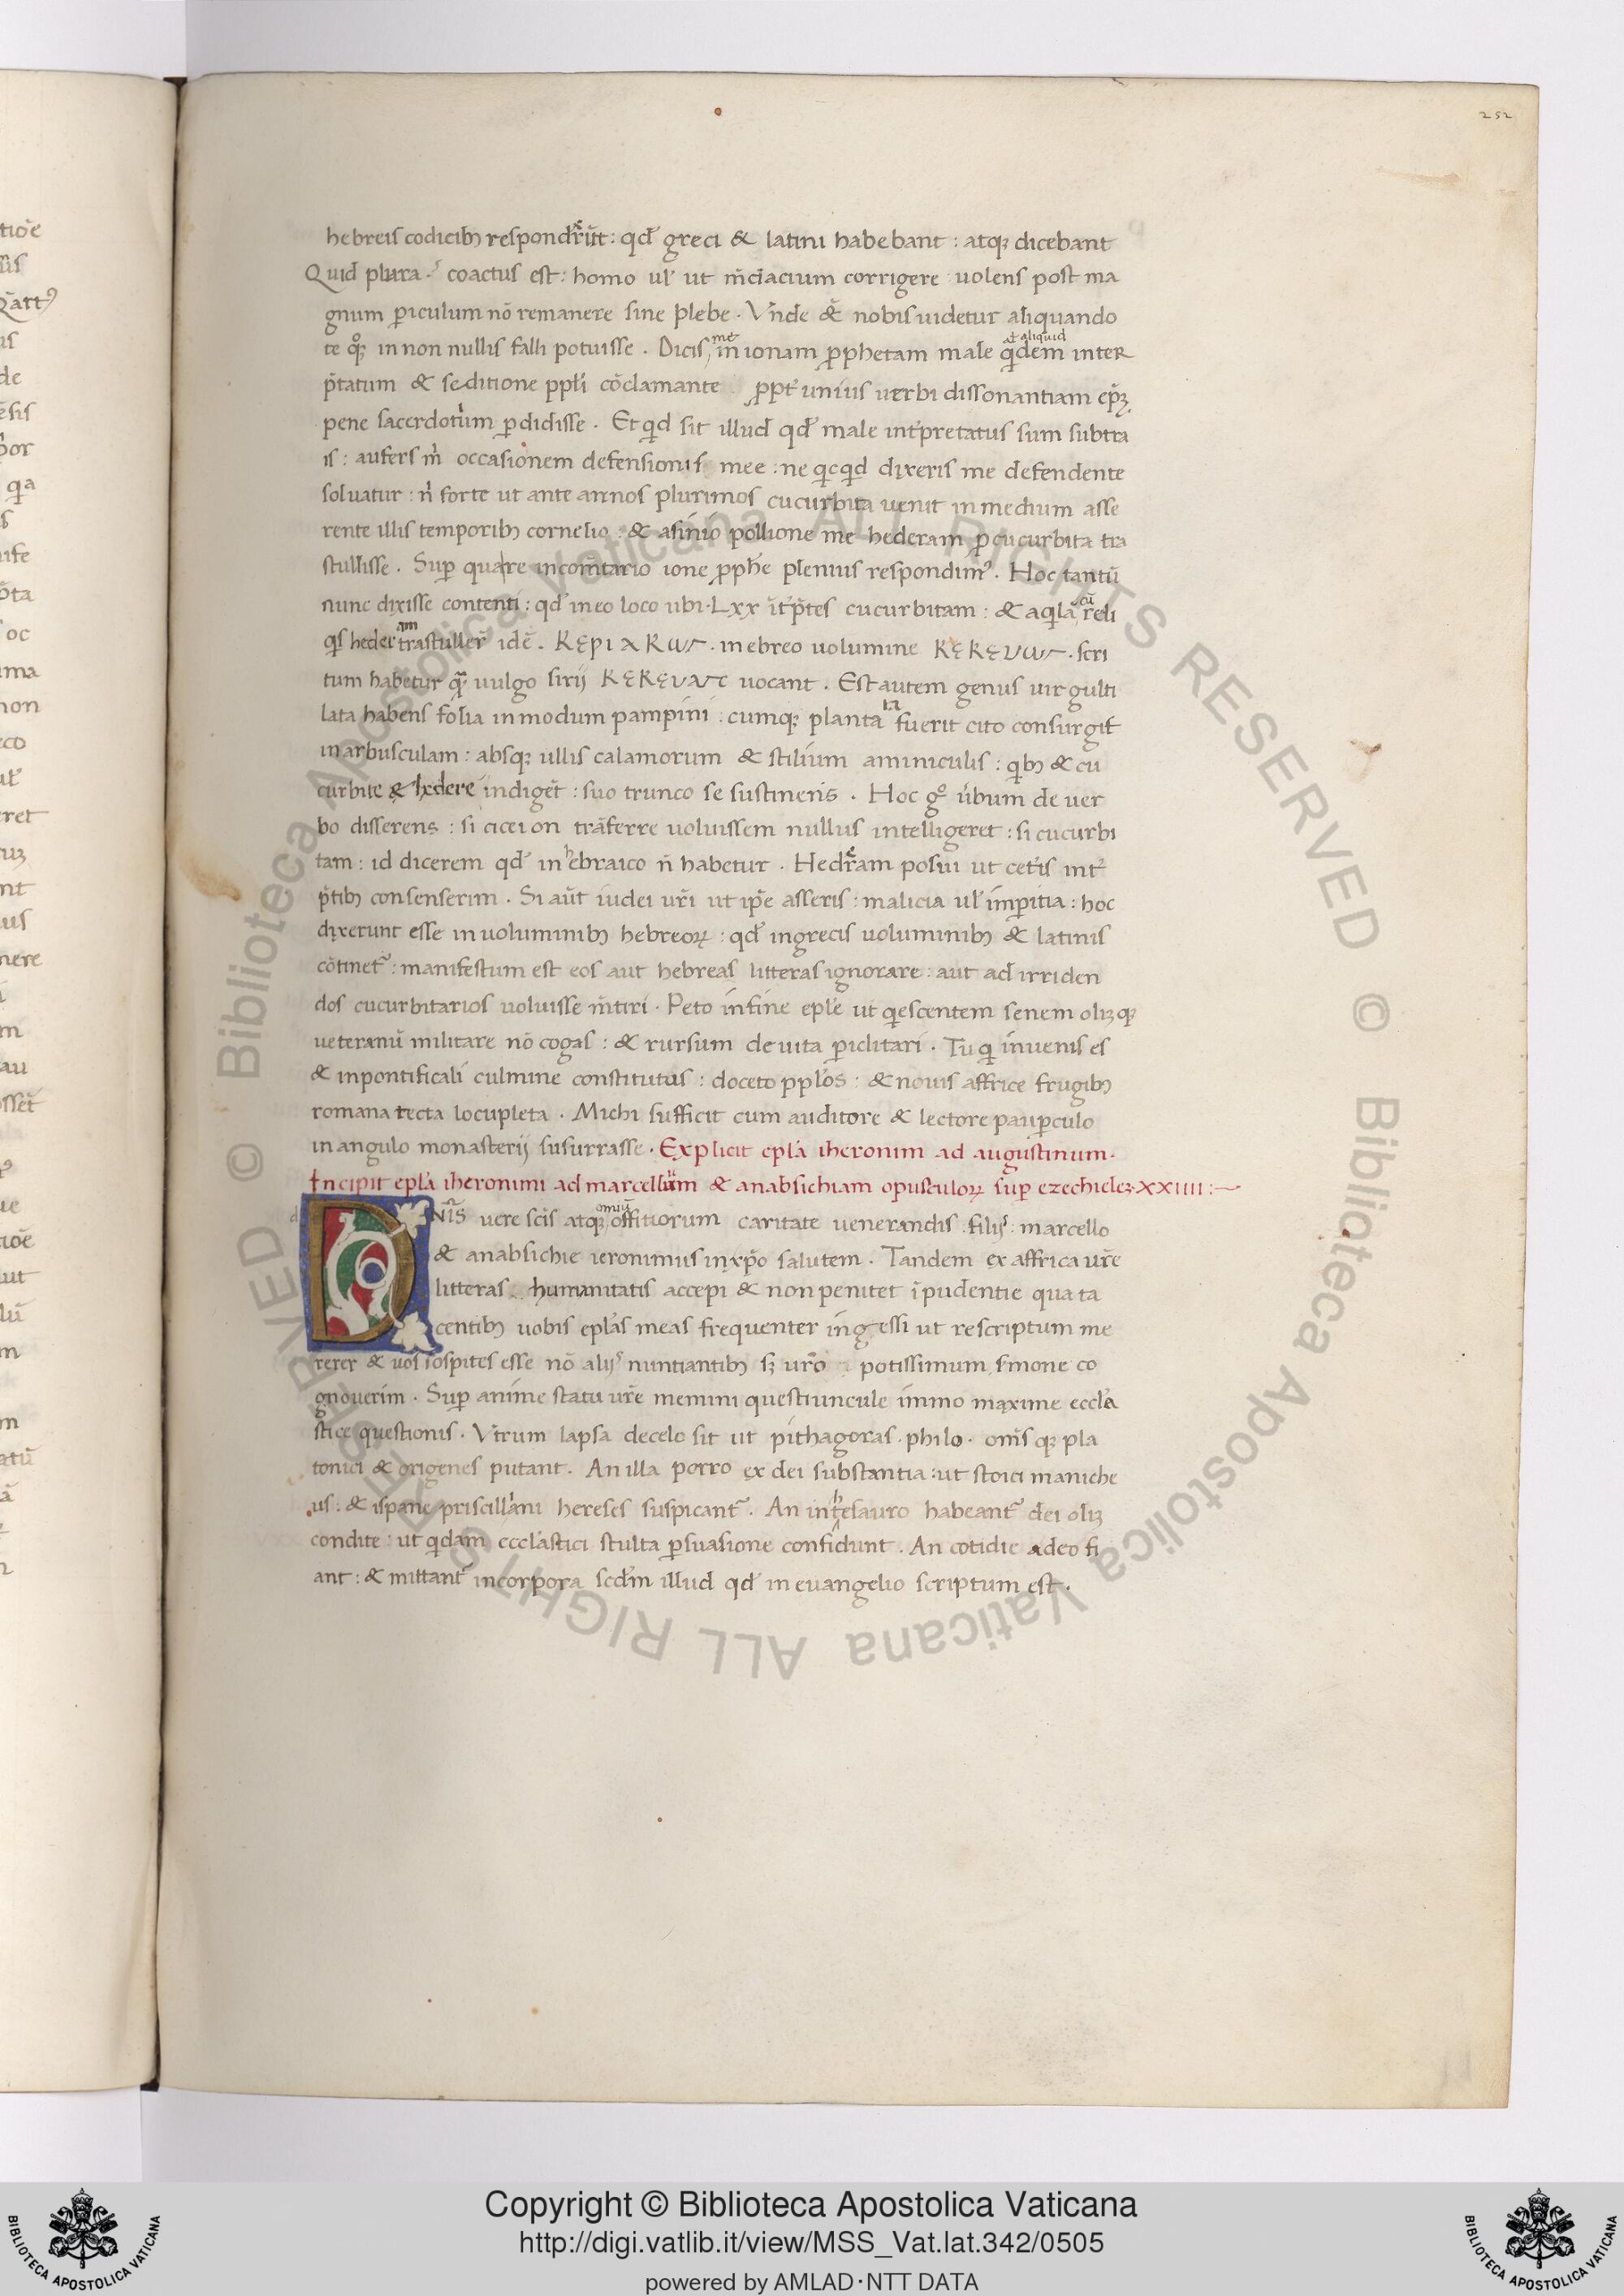 252
hebreis codicibꝫ respondr̃ũt : qđ greci & latini habebant : atqꝫ dicebant
Quid plura ? coactus est : homo ul̃ ut m̃dacium corrigere uolens post ma
gnum ꝑiculum nõ remanere sine plebe . Vnde & nobis uidetur aliquando
te qꝫ in non nullis falli potuisse . Dicis me in ionam ꝓphetam male qđdem aliquid inter
p̃tatum & seditione ppl̃i cõclamante ꝓpt̃ unius uerbi dissonantiam
pene sacerdotium ꝑdidisse . Et qid sit illud qđ male int̃pretatus sum subtra
is : aufers m̃ occasionem defensionis mee : ne qicqid dixeris me defendente
soluatur : ñ forte ut ante annos plurimos cucurbita uenit in medium asse
rente illis temporibꝫ cornelio : & asinio pollione me hederam ꝓ cucurbita tra
stulisse . Suꝑ quare in com̃tario ione ꝓph̃e plenius respondimꝰ . Hoc tantũ
nunc dixisse contenti : qđ in eo loco ubi . Lxx it̃p̃tes cucurbitam : & aqila cũ reli
qis hederam trastuller̃ idẽ . in ebreo uolumine . scri
tum habetur quã uulgo sirij uocant . Est autem genus uirgulti
lata habens folia in modum pampini : cumqꝫ plantata fuerit cito consurgit
in arbusculam : absqꝫ ullis calamorum & stilium aminiculis : qibꝫ & cu
curbite & hedere indiget : suo trunco se sustinens . Hoc gͦ u̇bum de uer
bo disserens : si cicei on trãferre uoluissem nullus intelligeret : si cucurbi
tam : id dicerem qđ in hebraico ñ habetur . Hedram posui ut cet̃is int̃
p̃tibꝫ consenserim . Si aũt iudei ur̃i ut ip̃e asseris : malicia ul̃ imꝑitia : hoc
dixerunt esse in uoluminibꝫ hebreoꝝ : qđ in grecis uoluminibꝫ & latinis
cõtinet̃ : manifestum est eos aut hebreas litteras ignorare : aut ad irriden
dos cucurbitarios uoluisse m̃tiri . Peto in fine epl̃e ut qiescentem senem olizqꝫ
ueteranũ militare nõ cogas : & rursum de uita ꝑiclitari . Tu qi iuuenis es
& in pontificali culmine constitutus : doceto ppl̃os : & nouis affrice frugibꝫ
romana tecta locupleta . Michi sufficit cum auditore & lectore pauꝑculo
in angulo monasterij susurrasse . Explicit epl̃a iheronim ad augustinum .
Incipit epl̃a iheronimi ad marcellum & anabsichiam opusculoꝝ suꝑ ezechielez . XXIIII :
DÑis uere sc̃is atqꝫ omniũ offitiorum caritate uenerandis filijs : marcello
& anabsichie ieronimus in xp̃o salutem . Tandem ex affrica ur̃e
litteras humanitatis accepi & non penitet ĩpudentie qua ta
centibꝫ uobis epl̃as meas frequenter ingessi ut rescriptum me
rerer & uos sospites esse nõ alijs nuntiantibꝫ sꝫ ur̃o potissimum s̃mone co
gnouerim . Suꝑ anime statu ur̃e memini questiuncule immo maxime eccl̃a
stice questionis . Vtrum lapsa de celo sit ut pithagoras . philo . oñis qꝫ pla
tonici & origenes putant . An illa porro ex dei substantia : ut stoici maniche
us : & ispane priscilliani hereses suspicant̃ . An in thesauro habeant̃ dei oliz
condite : ut qidam eccl̃astici stulta ꝑsuasione confidunt . An cotidie adeo fi
ant : & mittant̃ in corpora scd̃m illud qđ in euangelio scriptum est .
© Biblioteca Apostolica Vaticana ALL RIGHTS RESERVED
© Biblioteca Apostolica Vaticana ALL RIGHTS RESERVED
Copyright © Biblioteca Apostolica Vaticana
http://digi.vatlib.it/view/MSS_Vat.lat.342/0505
powered by AMLAD·NTT DATA
BIBLIOTECA APOSTOLICA VATICANA
BIBLIOTECA APOSTOLICA VATICANA